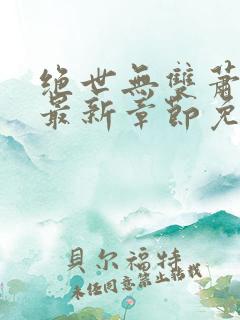 絕世無雙蕭
最新章節免
貝尔福特
未任同意禁止转载